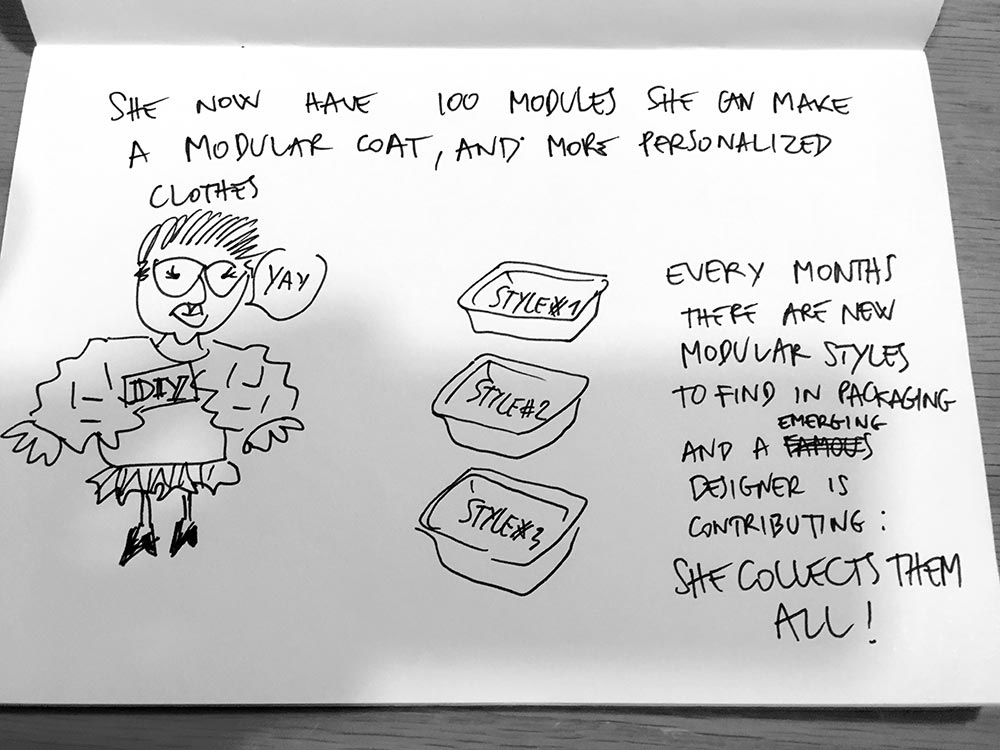 SHE NOW HAVE 100 MODULES SHE CAN MAKE
A MODULAR COAT, AND MORE PERSONALIZED
CLOTHES
YAY
DIY
STYLE#1
STYLE#2
STYLE#3
EVERY MONTHS
THERE ARE NEW
MODULAR STYLES
TO FIND IN PACKAGING
EMERGING
AND A FAMOUS
DESIGNER IS
CONTRIBUTING:
SHE COLLECTS THEM
ALL!